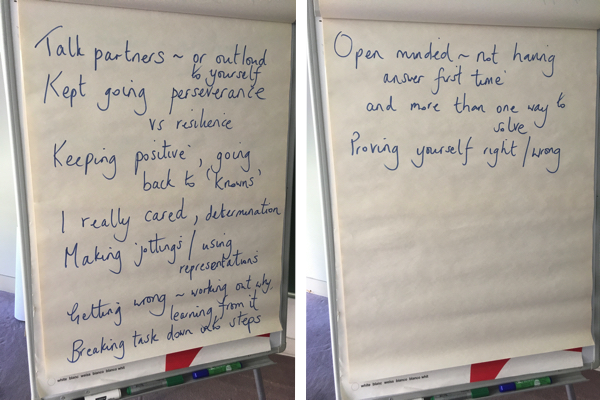 Talk partners ~ or outloud
to yourself
Kept going perseverance
vs resilience
Keeping positive, going
back to 'knowns'
I really cared, determination
Making jottings / using
representations
Getting wrong ~ working out why,
learning from it
Breaking task down into steps
Open minded ~ not having
answer first time
and more than one way to
solve
Proving yourself right / wrong